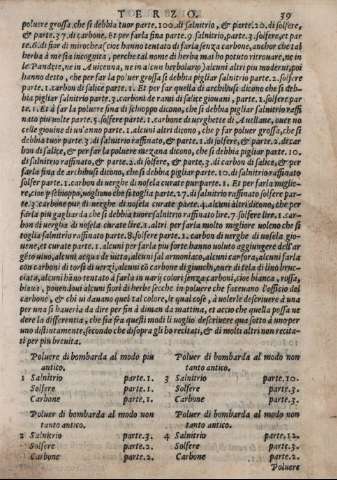 TERZO. 59
poluere grossa che si debbia tuor parte.100.di salnitrio, & parte.20.di solfere,
& parte.37.di carbone. Et per farla fina parte.9 salnitrio, parte.3.solfere, et par
te.6.di fior di mirochea(cioe hanno tentato di farla senza carbone, anchor che tal
herba à me sia incognita, perche tal nome di herba mai ho potuto ritrouare, ne in
le Pandete, ne in Auicenna, ne in alcun herbolario)alcuni altri piu moderni, poi
hanno detto, che per far la poluer grossa se debbia pigliar salnitrio parte.2.solfere
parte.1.carbon di salice parte.1. Et per far quella di archibusi dicono che si deb
bia pigliar salnitrio parte.3.carboni de rami di salice giouani, parte.1.solfere par
te.1. Et à far la poluere fina di schioppo dicono, che si debbia pigliar salnitrio raffi
nato piu molte parte.5.solfere parte.1.carbone di verghette di Auellane, ouer no
celle giouine di un'anno parte.1.alcuni altri dicono, che per far poluer grossa, che si
debbia tuor parte.3.di salnitrio raffinato, & parte.1.di solfere, & parte.2.di car
bon di salice, & per far la poluere mezana dicono, che si debbia pigliar parte.10.
di salnitrio raffinato, & parte.2.di solfere, & parte.3.di carbon di salice, & per
farla fina de archibusi dicono, che si debbia pigliar parte.10.di salnitrio raffinato
solfer parte.1.carbon di uerghe di nosela curate parte.1. Et per farla miglio-
re, cioe per schioppi, uogliono che si toglia parte.27.di salnitrio raffinato solfere par-
te.3.carbone pur di uerghe di nosela curate parte.4.alcuni altri dicono, che per
farla piu gagliarda che si debbia tuore salnitrio raffinato lire.7 solfere lire.1.car-
bon di uerghe di nosela curate lire.1.altri per farla molto megliore uoleno che si
toglia salnitrio raffinato parte.8.solfere parte.1.carbon di uerghe di nosela gio
uene, et curate parte.1.alcuni per farla piu forte hanno uoluto aggiungere dell'ar
gento uiuo, alcuni acqua de uitta, alcuni sal armoniaco, alcuni carfora, alcuni farla
con carboni di torsi di uerzi, alcuni co carbone di gionchi, ouer di tela di lino bruc-
ciata, alcuni hanno tentato à farla in uarij colori senza carboni, cioe bianca, rossa,
biaua, ponendoui alcuni fiori di herbe secche in poluere che faceuano l'officio del
carbone, & chi ui dauano quel tal colore, le qual cose, à uolerle descriuere à una
per una si haueria da dire per fin à diman da mattina, et accio che quella possa ne
tere la differentia, che sia fra questi modi li uoglio descriuere qua sotto à uno per
uno distintamente, secondo che disopra gli ho recitati, & di molti altri non recita-
ti per piu breuita.
Poluere di bombarda al modo piu antico.
1 Salnitrio parte.1.
Solfere parte.1.
Carbone parte.1.
Poluer di bombarda al modo non tanto antico.
2 Salnitrio parte.3.
Solfere parte.2.
Carbone parte.2.
Poluere di bombarda al modo non tanto antico.
3 Salnitrio parte.10.
Solfere parte.3.
Carbone parte.3.
Poluer di bombarda al modo non tanto antico.
4 Salnitrio parte.12.
Solfere parte.3.
Carbone parte.2.
Poluere